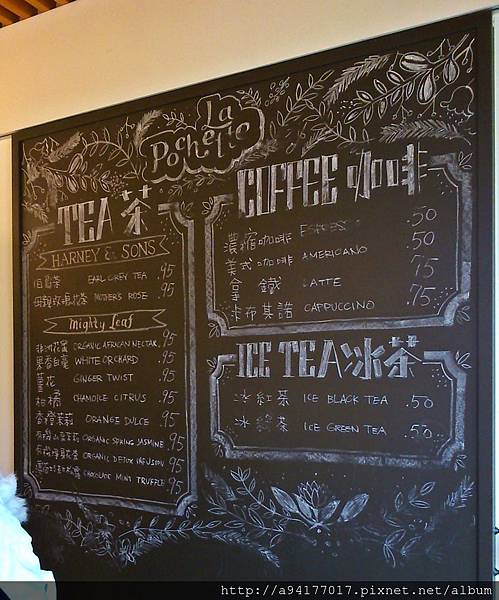 La
Pochette
TEA 茶
HARNEY & SONS
伯爵茶 EARL GREY TEA .95
母親玫瑰花茶 MOTHER'S ROSE .95
Mighty Leaf
非洲花蜜 ORGANIC AFRICAN NECTAR .95
果香白毫 WHITE ORCHARD .95
薑花 GINGER TWIST .95
柑橘 CHAMOILE CITRUS .95
香橙茉莉 ORANGE DULCE .95
ORGANIC SPRING JASMINE .95
ORGANIC DETOX INFUSION .95
CHOCOLATE MINT TRUFFLE .95
COFFEE 咖啡
濃縮咖啡 ESPRESSO .50
美式咖啡 AMERICANO .50
拿鐵 LATTE .75
卡布其諾 CAPPUCCINO .75
ICE TEA 冰茶
冰紅茶 ICE BLACK TEA .50
冰綠茶 ICE GREEN TEA .50
http://a94177017.pixnet.net/album